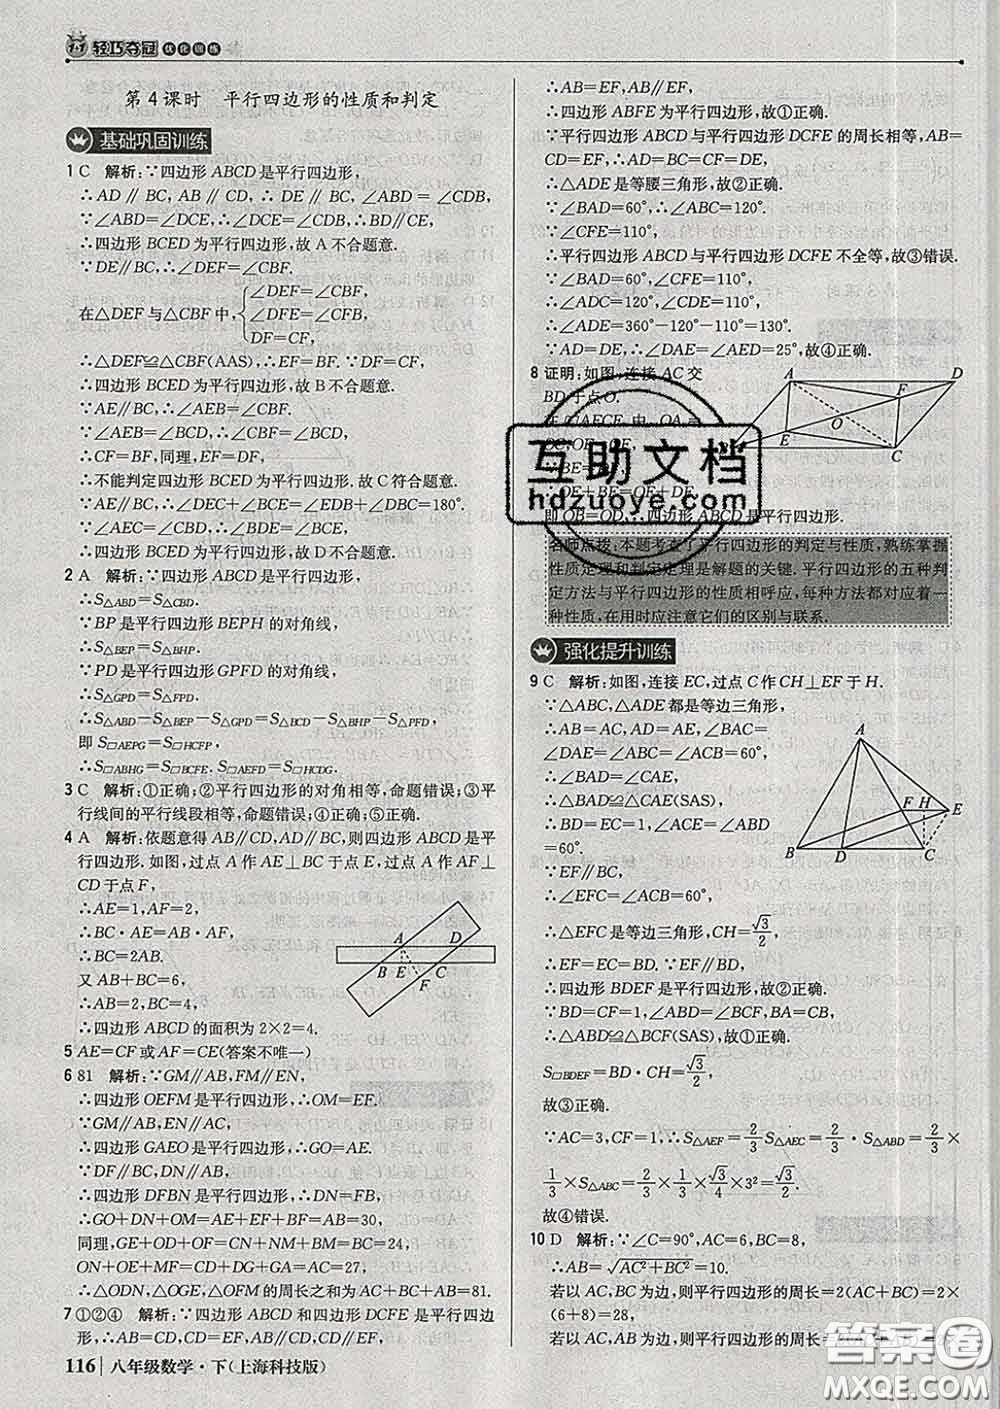 1+1 轻巧夺冠 优化训练
第4课时 平行四边形的性质和判定
基础巩固训练
1 C 解析:∵四边形ABCD是平行四边形,
∴AD∥BC, AB∥CD, ∴DE∥BC, ∠ABD=∠CDB,
∵∠ABD=∠DCE,∴∠DCE=∠CDB,∴BD∥CE,
∴四边形BCED为平行四边形,故A不合题意.
∵DE∥BC,∴∠DEF=∠CBF.
在△DEF与△CBF中,
∠DEF=∠CBF,
∠DFE=∠CFB,
DF=CF,
∴△DEF≌△CBF(AAS),∴EF=BF. ∵DF=CF,
∴四边形BCED为平行四边形,故B不合题意.
∵AE∥BC,∴∠AEB=∠CBF.
∵∠AEB=∠BCD,∴∠CBF=∠BCD,
∴CF=BF,同理,EF=DF,
∴不能判定四边形BCED为平行四边形.故C符合题意.
∵AE∥BC,∴∠DEC+∠BCE=∠EDB+∠DBC=180°.
∵∠AEC=∠CBD,∴∠BDE=∠BCE,
∴四边形BCED为平行四边形,故D不合题意.
2 A 解析:∵四边形ABCD是平行四边形,
∴S△ABD=S△CBD.
∵BP是平行四边形BEPH的对角线,
∴S△BEP=S△BHP.
∵PD是平行四边形GPFD的对角线,
∴S△GPD=S△FPD.
∴S△ABD-S△BEP-S△GPD=S△BCD-S△BHP-S△PFD,
即S□AEPG=S□HCFP,
∴S□ABHG=S□BCFE. S□AEFD=S□HCDG.
3 C 解析:①正确;②平行四边形的对角相等,命题错误;③平
行线间的平行线段相等,命题错误;④正确;⑤正确.
4 A 解析:依题意得AB∥CD,AD∥BC,则四边形ABCD是平
行四边形.如图,过点A作AE⊥BC于点E,过点A作AF⊥
CD于点F,
∴AE=1,AF=2,
∴BC·AE=AB·AF,
∴BC=2AB.
又AB+BC=6,
∴AB=2,BC=4,
∴四边形ABCD的面积为2×2=4.
A D
B E C
F
5 AE=CF或AF=CE(答案不唯一)
6 81 解析:∵GM∥AB,FM∥EN,
∴四边形OEFM是平行四边形,∴OM=EF.
∵GM∥AB,EN∥AC,
∴四边形GAEO是平行四边形,∴GO=AE.
∴四边形DFBN是平行四边形,∴DN=FB,
∴GO+DN+OM=AE+FB+EF=AB=30,
同理,GE+OF+DM=AO+OC=BC=24,
OE+MF+GN=CD+DG+GA=AC=27,
∴△ODN,△OGE,△OFM的周长之和为AB+BC+AC=81.
7 ①②④ 解析:∵四边形ABCD和四边形DCFE是平行四边
形,∴AB=CD,CD=EF,AB∥CD,CD∥EF,
116 八年级数学·下(上海科技版)
∴AB=EF,AB∥EF,
∴四边形ABFE为平行四边形,故①正确.
∵平行四边形ABCD与平行四边形DCFE的周长相等,AB=
CD=EF,∴AD=BC=CF=DE,
∴△ADE是等腰三角形,故②正确.
∵∠BAD=60°,∴∠ABC=120°.
∵∠CFE=110°,
∴平行四边形ABCD与平行四边形DCFE不全等,故③错误.
∵∠BAD=60°,∠CFE=110°,
∴∠ADC=120°,∠CDE=110°,
∴∠ADE=360°-120°-110°=130°.
∵AD=DE,∴∠DAE=∠AED=25°,故④正确.
8 证明:如图,连接AC交
BD于点O.
在□AECF中,OA=
OC,OE=OF,
∵BE=DF,
∴OE+BE=OF+DF,
即OB=OD,∴四边形ABCD是平行四边形.
A D
F
E O
C
名师点拨:本题考查了平行四边形的判定与性质,熟练掌握
性质定理和判定定理是解题的关键.平行四边形的五种判
定方法与平行四边形的性质相呼应,每种方法都对应着一
种性质,在用时应注意它们的区别与联系.
强化提升训练
9 C 解析:如图,连接EC,过点C作CH⊥EF于H.
∵△ABC,△ADE都是等边三角形,
∴AB=AC,AD=AE,∠BAC=
∠DAE=∠ABC=∠ACB=60°,
∴∠BAD=∠CAE,
∴△BAD≌△CAE,
∴BD=EC=1,∠ACE=∠ABD
=60°.
∵EF∥BC,
∴∠EFC=∠ACB=60°,
∴△EFC是等边三角形,CH=√3/2,
∴EF=EC=BD.∵EF∥BD,
∴四边形BDEF是平行四边形,故②正确.
∵BD=CF=1,∠ABD=∠BCF,BA=CB,
∴△ABD≌△BCF(SAS),故①正确.
S□BDEF=BD·CH=√3/2,
故③正确.
∵AC=3,CF=1,∴S△AEF=2/3 S△AEC=2/3·S△ABD=2/3×
1/3×S△ABC=2/3×1/3×√3/4×3²=√3/2.
故④错误.
A
F H E
B D C
10 D 解析:∵∠C=90°,AC=6,BC=8,
∴AB=√AC²+BC²=10.
若以AC,BC为边,则平行四边形的周长=2(AC+BC)=2×
(6+8)=28,
若以AC,AB为边,则平行四边形的周长=
互助文档
hdzuoye.com
答案圈
MXQE.COM